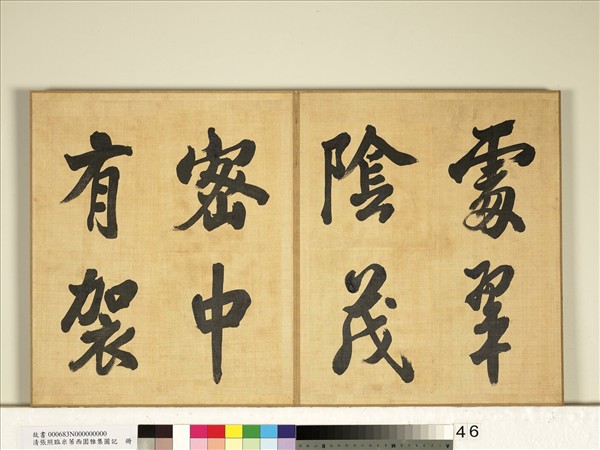 處翠
陰茂
密中
有袈
故書 000683N000000000
清張照臨米芾西園雅集圖記 冊
46